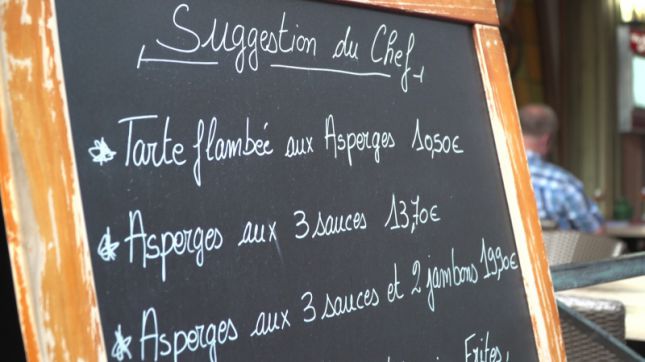 Suggestion du Chef
* Tarte flambée aux Asperges 10,50€
* Asperges aux 3 sauces 13,70€
* Asperges aux 3 sauces et 2 jambons 19,90€
Frites,